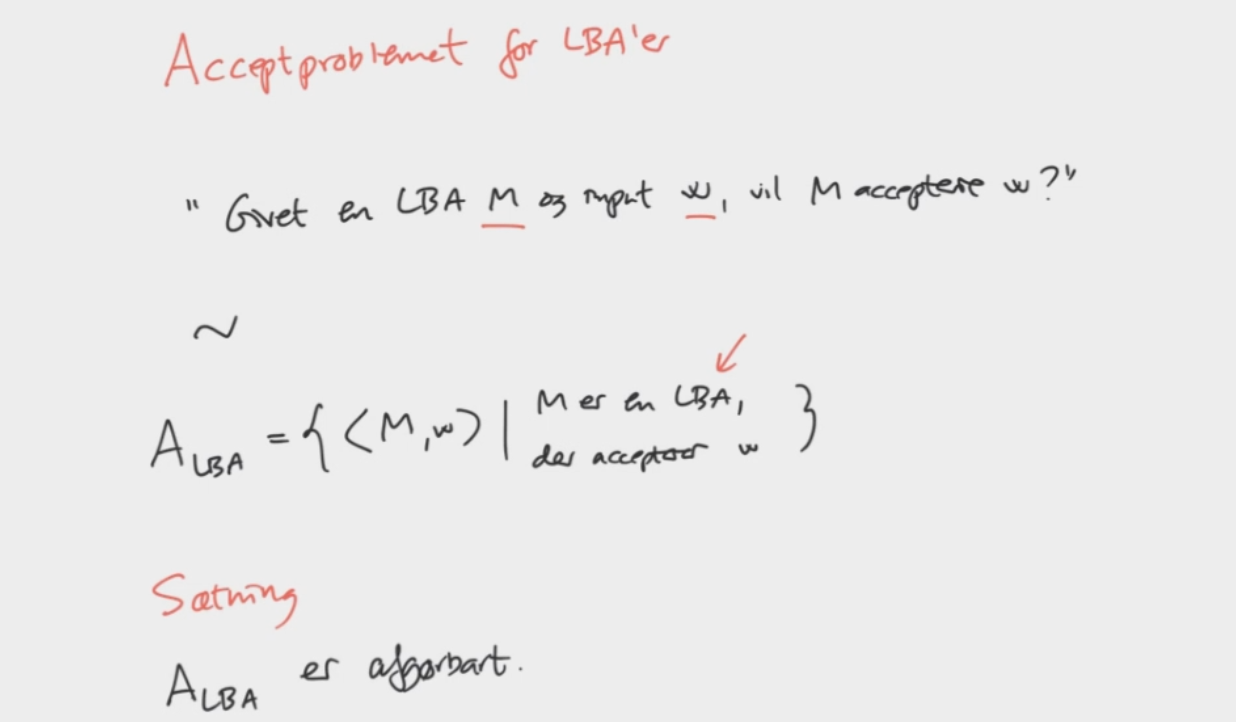 Acceptproblemet for LBA'er
"Givet en LBA M og input w, vil M acceptere w?"
~
A_LBA = { <M,w> | M er en LBA,
der accepterer w }
Sætning
A_LBA er afgørbart.